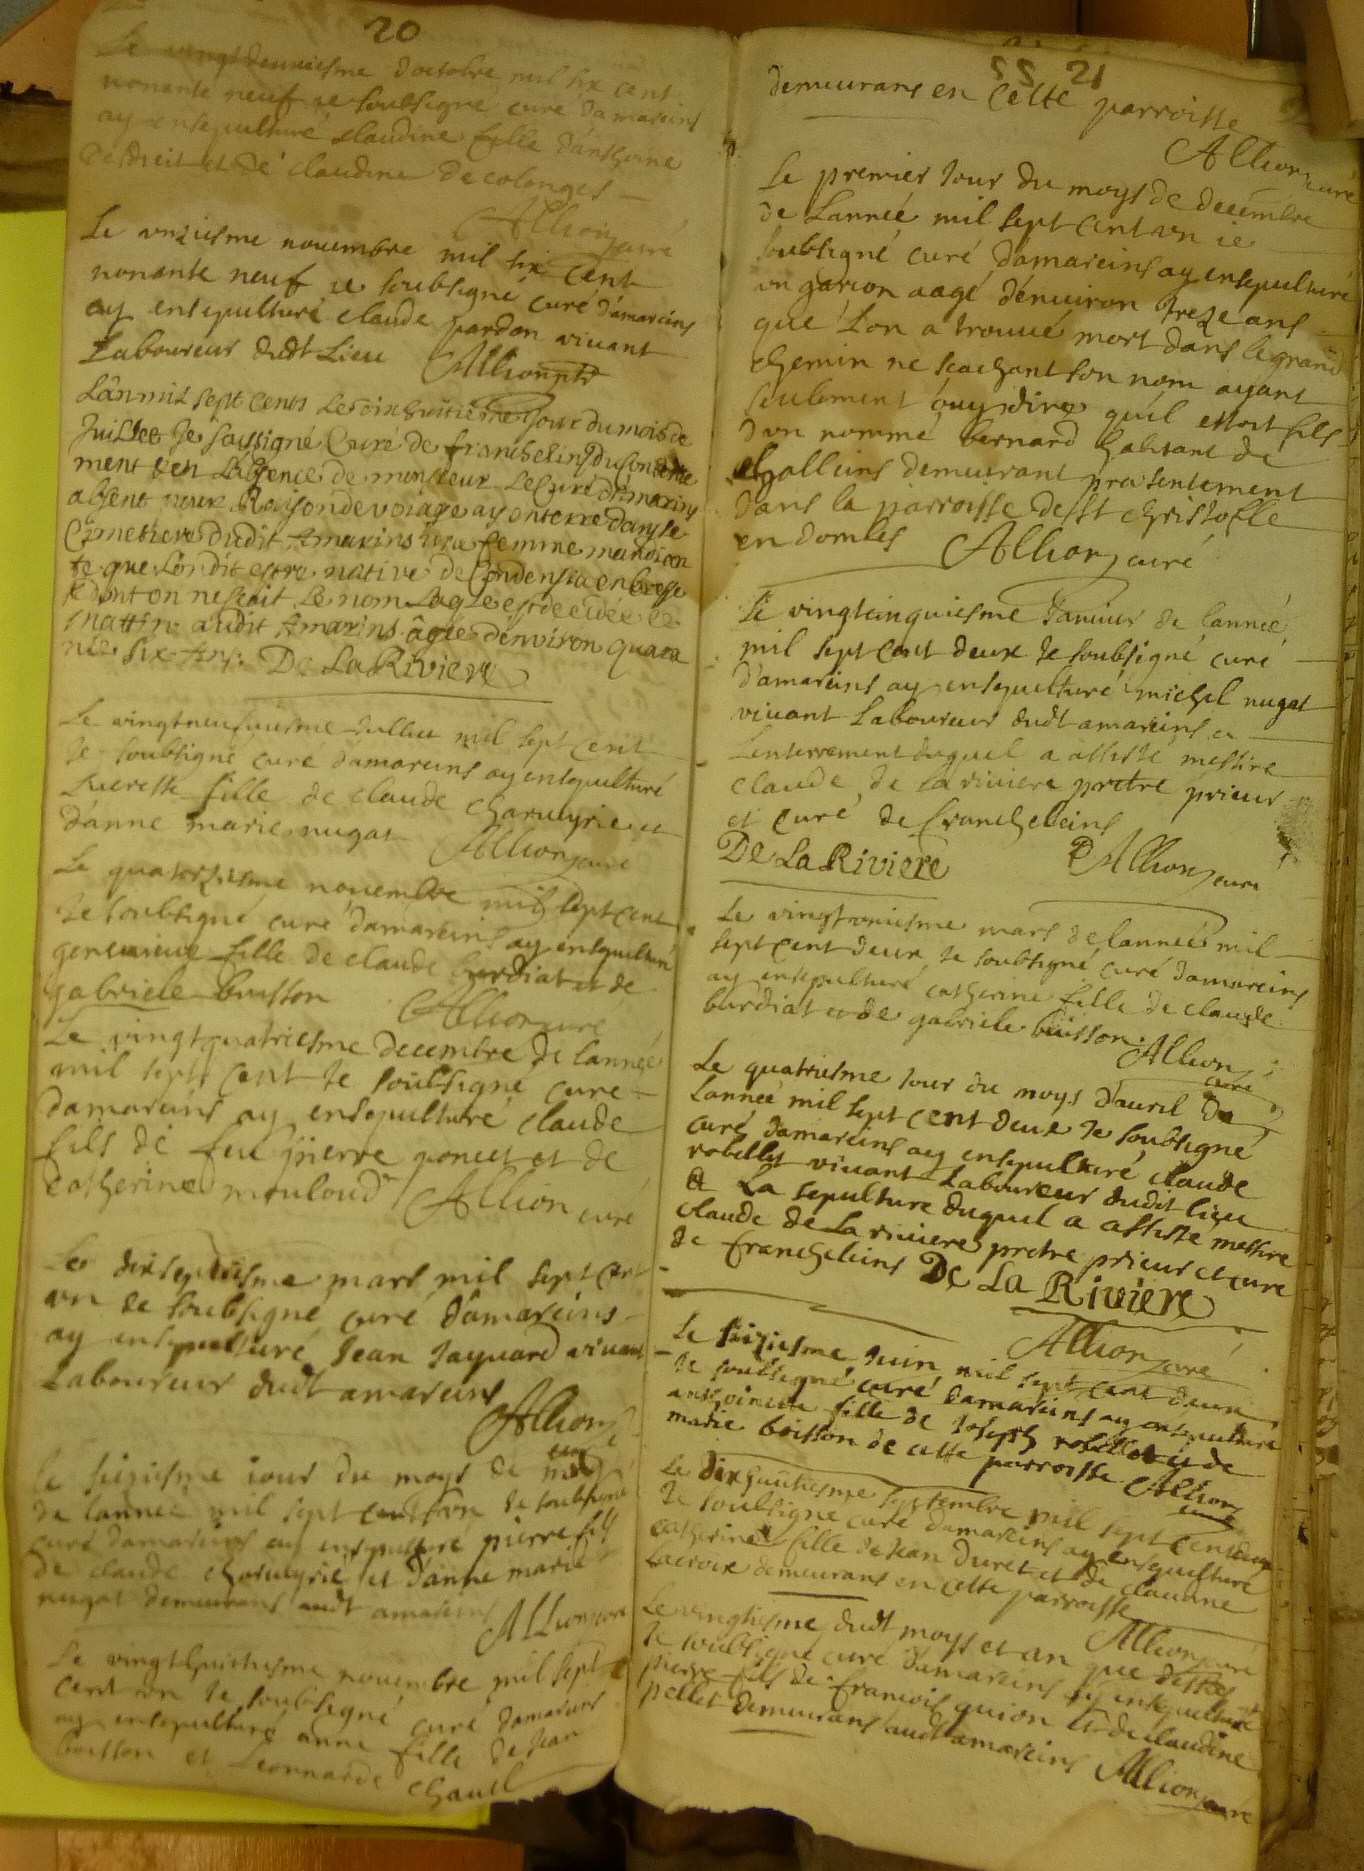 20
Le vingtdeuxiesme doctobre mil six cent
nonante neuf je soubsigné curé damareins
ay ensepulturé claudine fille danthoine
et de claudine de colonges
Allion curé
Le unziesme novembre mil six cent
nonante neuf je soubsigné curé d'amareins
ay ensepulturé claude pardon vivant
Laboureur dudt Lieu Allion
Lan mil sept cents Le dix huitieme Jour du mois de
Juillet Je soussigné Curé de francheleins du
ment et en L'absence de monsieur Le Curé d'amarins
absent pour Raison de voiage ay enterré dans le
Cimetiere dudit Amarins une femme mandian
te que L'on dit estre native de Condensia en bresse
dont on ne scait Le nom Laqle est decedée ce
mattin audit Amarins âgée d'environ quara
nte six Ans. De La Riviere
Le vingtneufviesme Juillet mil sept cent
Je soubsigné curé damareins ay ensepulturé
Lucresse fille de claude charveyrie et
d'anne marie nugat Allion curé
Le quatorziesme novembre mil sept cent
Je soubsigné curé damareins ay ensepulturé
genevieve fille de claude burdiat et de
gabriele buisson Allion curé
Le vingtquatriesme decembre de lannée
mil sept cent Je soubsigné curé
damareins ay ensepulturé claude
fils de feu pierre poncet et de
catherine mouloud Allion curé
Le dixseptiesme mars mil sept cent
un Je soubsigné curé d'amareins
ay ensepulturé Jean Jayuard vivant
Laboureur dudt amareins
Allion curé
Le siziesme iour du moys de may
de lannée mil sept cent un Je soubsigné
curé damareins ay ensepulturé pierre fils
de claude charveyrie et d'anne marie
nugat demeurans audt amareins
Allion curé
Le vingthuictiesme novembre mil sept
cent un Je soubsigné curé damareins
ay ensepulturé anne fille de Jean
boisson et Leonnarde chanel
55 21
demeurans en cette parroisse
Allion curé
Le premier Jour du moys de decembre
de Lannée mil sept cent un ie
soubsigné curé damareins ay ensepulturé
un garcon aagé d'environ treze ans
que lon a trouvé mort dans le grand
chemin ne scachant son nom ayant
seulement ouy dire quil estoit fils
dun nommé bernard habitant de
challeins demeurant presentement
dans la parroisse de st christofle
en dombes Allion curé
Le vingtcinquiesme Janvier de lannée
mil sept cent deux Je soubsigné curé
damareins ay ensepulturé michel nugat
vivant Laboureur dudt amareins a
Lenterrement duquel a assisté messire
claude de la riviere pretre prieur
et curé de francheleins
De La Riviere Allion curé
Le vingtuniesme mars de lannée mil
sept cent deux Je soubsigné curé damareins
ay ensepulturé catherine fille de claude
burdiat et de gabriele buisson
Allion curé
Le quatriesme Jour du moys d'avril de
Lannée mil sept cent deux Je soubsigné
curé damareins ay ensepulturé claude
robellet vivant Laboureur dudit lieu
A La sepulture duquel a assisté messire
claude de La riviere pretre prieur et curé
de francheleins De La Riviere
Allion curé
Le siziesme Juin mil sept cent deux
Je soubsigné curé damareins ay ensepulturé
anthoinette fille de Joseph robellet et de
marie boisson de cette parroisse Allion
curé
Le dixhuictiesme septembre mil sept cent deux
Je soubsigné curé damareins ay ensepulturé
catherine fille de Jean Duret et de claudine
Lacroix demeurans en cette parroisse
Allion curé
Le vingtiesme dudt moys et an que dessus
Je soubsigné curé damareins ay ensepulturé
pierre fils de francois quion et de claudine
pellet demeurans audt amareins
Allion curé